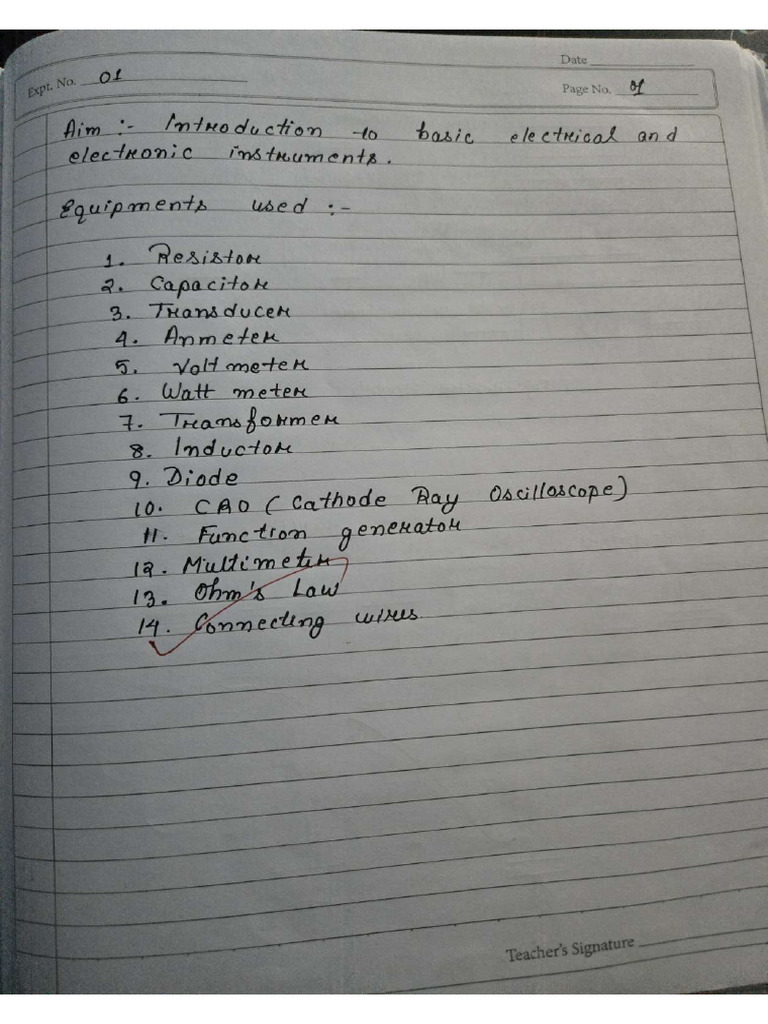 Date
Expt. No. 01
Page No. 01
Aim :- Introduction to basic electrical and
electronic instruments.
Equipments used :-
1. Resistor
2. Capacitor
3. Transducer
4. Ammeter
5. Voltmeter
6. Watt meter
7. Transformer
8. Inductor
9. Diode
10. CRO (Cathode Ray Oscilloscope)
11. Function generator
12. Multimeter
13. Ohm's Law
14. Connecting wires
Teacher's Signature